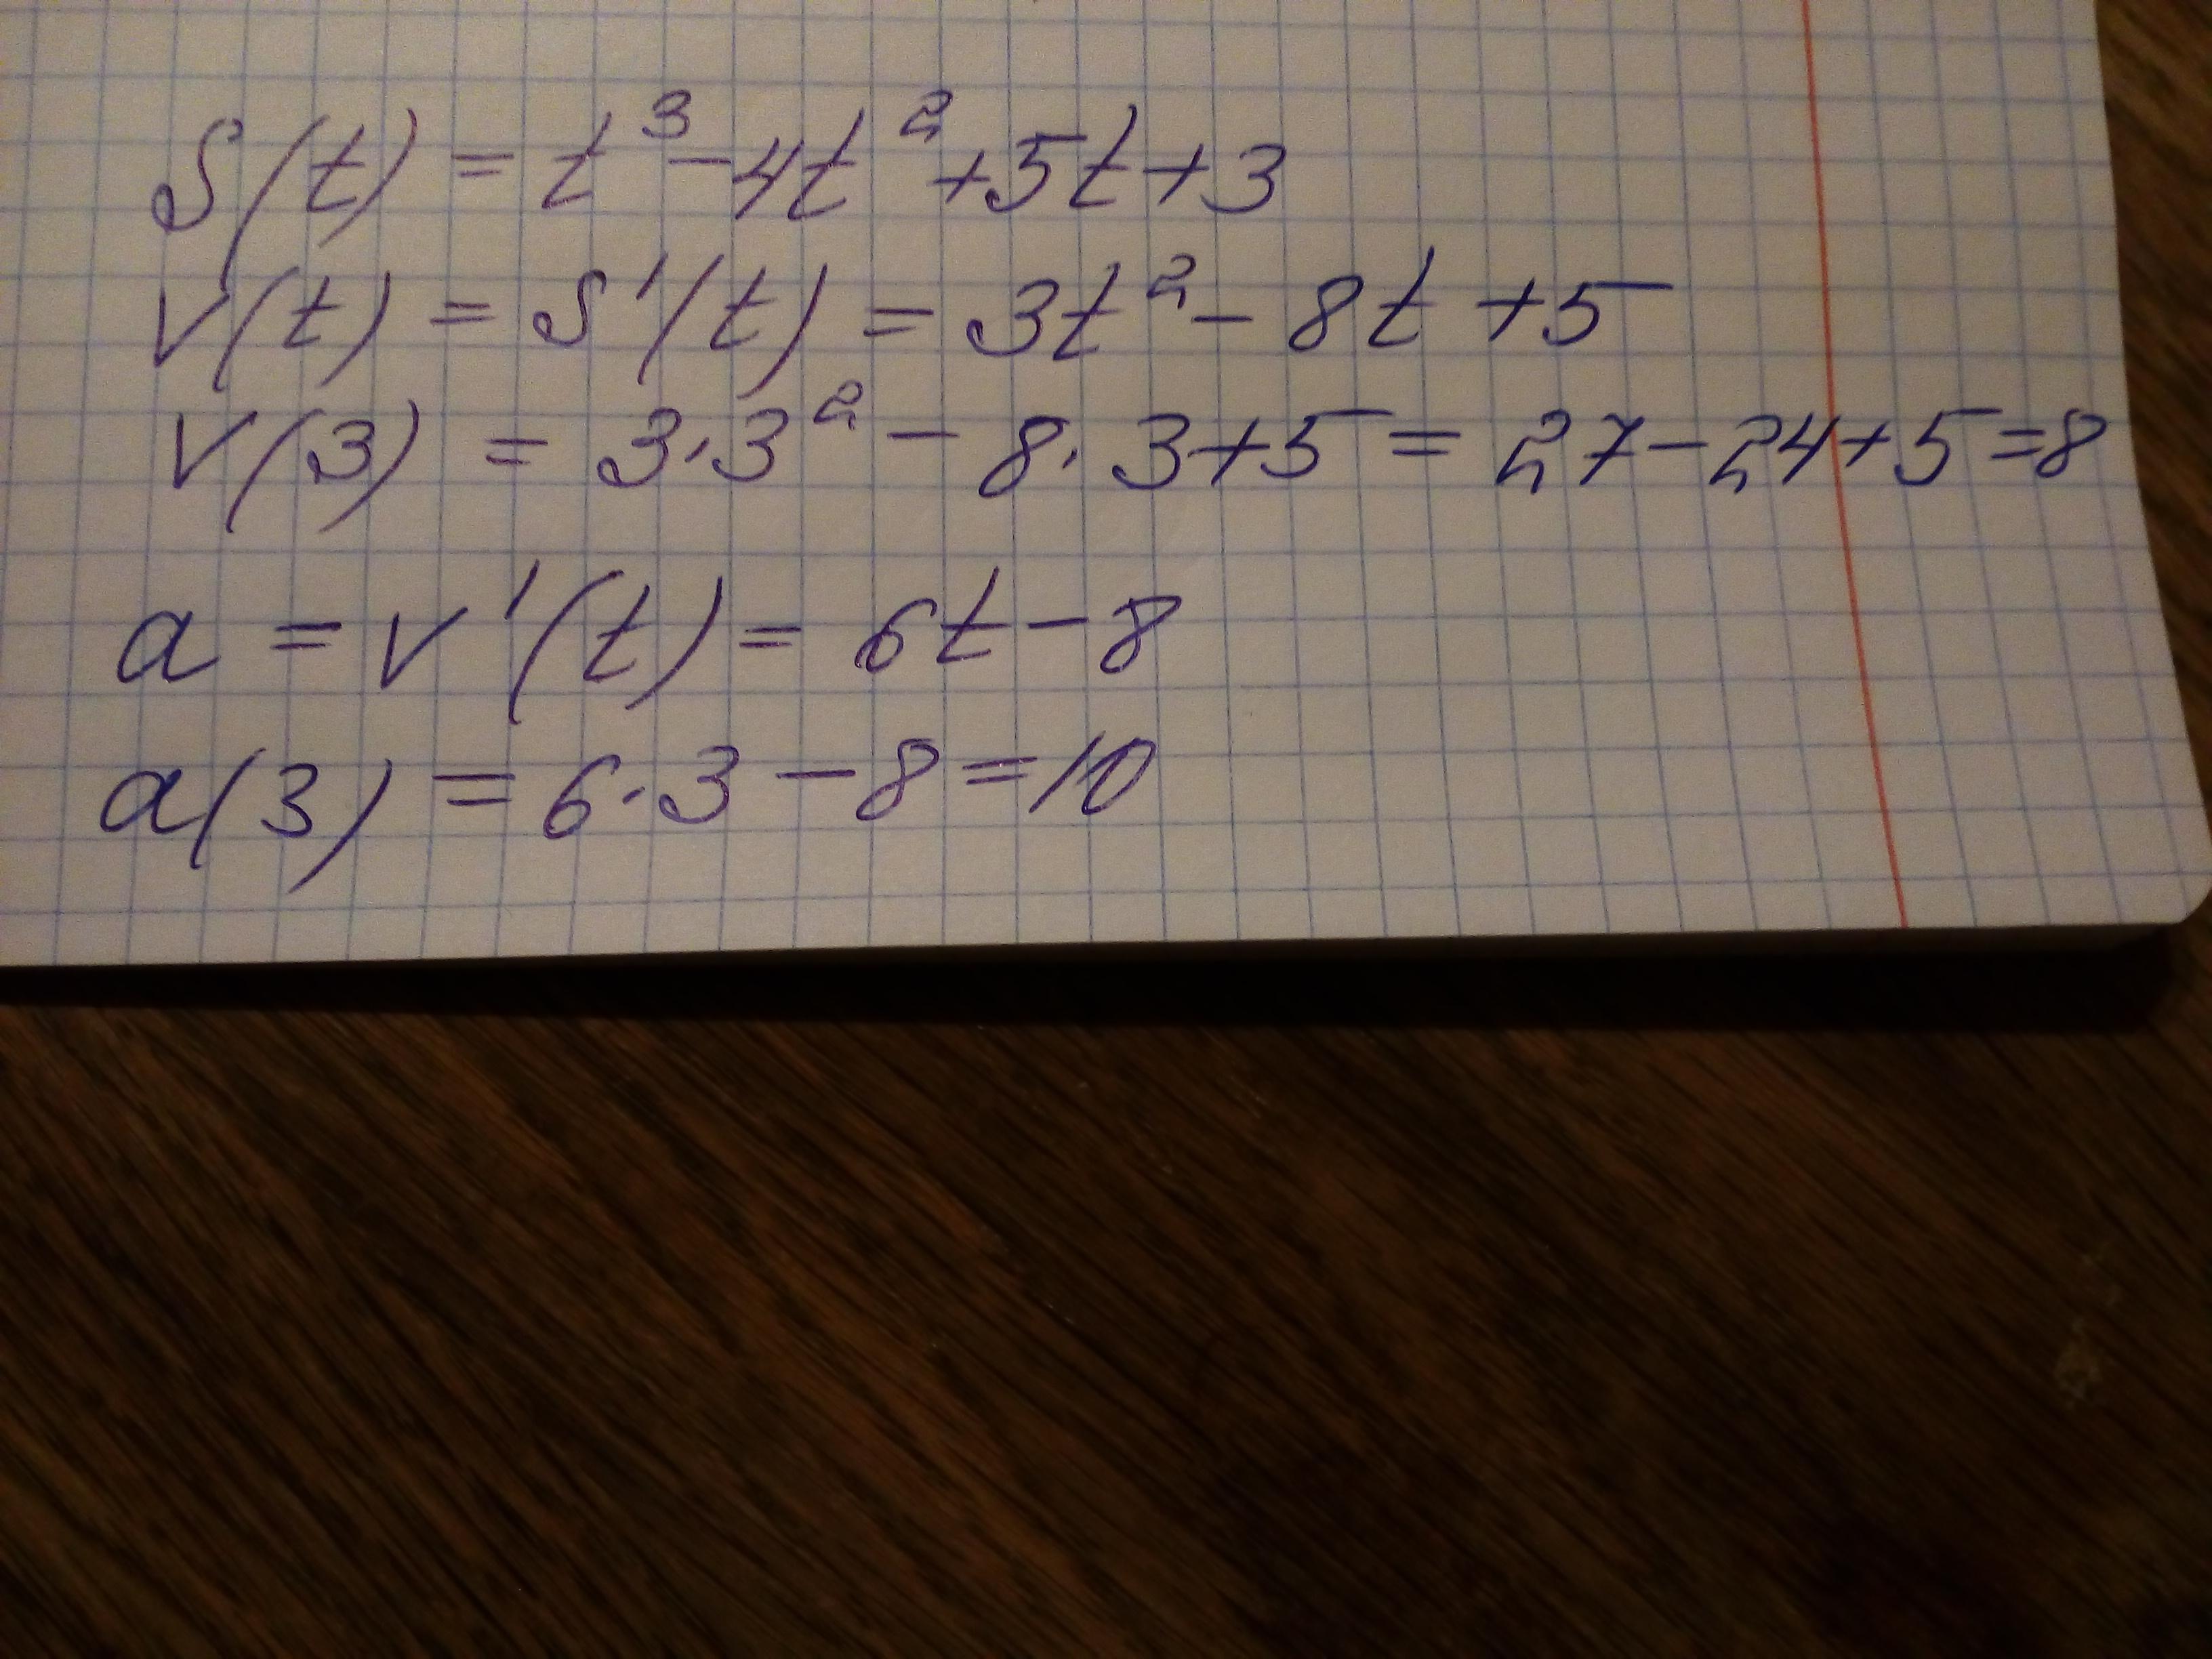 S(t) = t³ - 4t² + 5t + 3
v(t) = S'(t) = 3t² - 8t + 5
v(3) = 3·3² - 8·3 + 5 = 27 - 24 + 5 = 8
a = v'(t) = 6t - 8
a(3) = 6·3 - 8 = 10